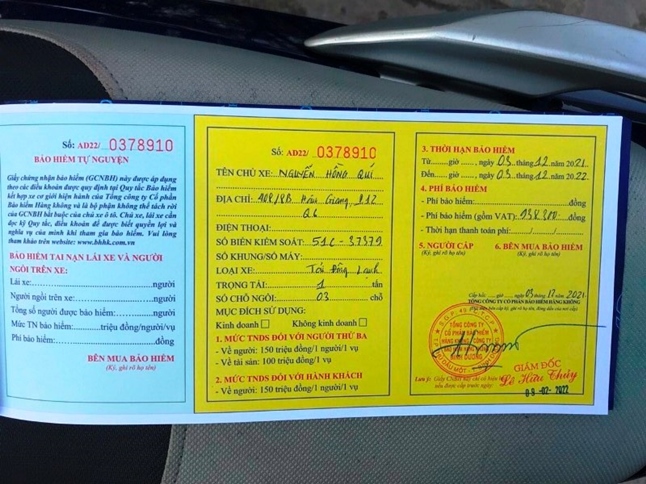 Số: AD22/ 0378910
BẢO HIỂM TỰ NGUYỆN
Giấy chứng nhận bảo hiểm (GCNBH) này được áp dụng
theo các điều khoản được quy định tại Quy tắc Bảo hiểm
kết hợp xe cơ giới hiện hành của Tổng công ty Cổ phần
Bảo hiểm Hàng không và là bộ phận không thể tách rời
của GCNBH bắt buộc của chủ xe ô tô. Chủ xe, lái xe cần
đọc kỹ Quy tắc, điều khoản để được biết quyền lợi và
nghĩa vụ của mình khi tham gia bảo hiểm. Vui lòng
tham khảo trên website: www.bhhk.com.vn
BẢO HIỂM TAI NẠN LÁI XE VÀ NGƯỜI
NGỒI TRÊN XE:
Lái xe: người
Người ngồi trên xe: người
Tổng số người được bảo hiểm: người
Mức TN bảo hiểm: triệu đồng/người/vụ
Phí bảo hiểm: đồng
BÊN MUA BẢO HIỂM
(Ký, ghi rõ họ tên)
Số: AD22/ 0378910
TÊN CHỦ XE: NGUYỄN HỒNG QUÍ
ĐỊA CHỈ: Hậu Giang, P12
Q6
ĐIỆN THOẠI:
SỐ BIỂN KIỂM SOÁT: 51C - 37379
SỐ KHUNG/SỐ MÁY:
LOẠI XE: Tải Đông Lạnh
TRỌNG TẢI: 1 tấn
SỐ CHỖ NGỒI: 03 chỗ
MỤC ĐÍCH SỬ DỤNG:
Kinh doanh Không kinh doanh
1. MỨC TNDS ĐỐI VỚI NGƯỜI THỨ BA
- Về người: 150 triệu đồng/1 người/1 vụ
- Về tài sản: 100 triệu đồng/1 vụ
2. MỨC TNDS ĐỐI VỚI HÀNH KHÁCH
- Về người: 150 triệu đồng/1 người/1 vụ
3. THỜI HẠN BẢO HIỂM
Từ giờ , ngày 03 tháng 12 năm 2021
Đến giờ , ngày 03 tháng 12 năm 2022
4. PHÍ BẢO HIỂM
- Phí bảo hiểm: đồng
- Phí bảo hiểm (gồm VAT): đồng
- Thời hạn thanh toán phí: / /
5. NGƯỜI CẤP 6. BÊN MUA BẢO HIỂM
(Ký, ghi rõ họ tên) (Ký, ghi rõ họ tên)
Cấp hồi giờ ngày 03 12 2021
TỔNG CÔNG TY CỔ PHẦN BẢO HIỂM HÀNG KHÔNG
TỔNG CÔNG TY
CỔ PHẦN BẢO HIỂM
HÀNG KHÔNG - CÔNG TY
BÌNH DƯƠNG
GIÁM ĐỐC
Lê Hữu Thủy
09 -02- 2022